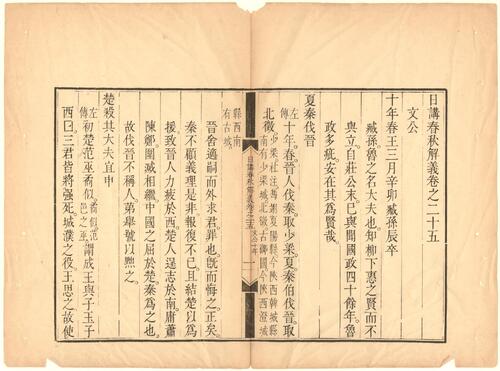 日講春秋解義卷之二十五
文公
十年春王三月辛卯臧孫辰卒
臧孫魯之名大夫也知柳下惠之賢而不
與立自莊公末已與聞國政四十餘年魯
政多疵安在其為賢哉
夏秦伐晉
左傳十年春晉人伐秦取少梁夏秦伯伐晉取
北徵
縣西南
有古城
日講春秋解義卷之二十五
晉舍適嗣而外求君罪也旣而悔之正矣
秦不顧義理是非報復不已且結楚以為
援致晉人力疲於西楚人逞志於南庸蕭
陳鄭圍滅相繼中國之屈於楚秦為之也
故伐晉不稱人第舉號以黜之
楚殺其大夫宜申
左傳初楚范巫矞似謂成王與子玉子
西曰三君皆將强死城濮之役王思之故使